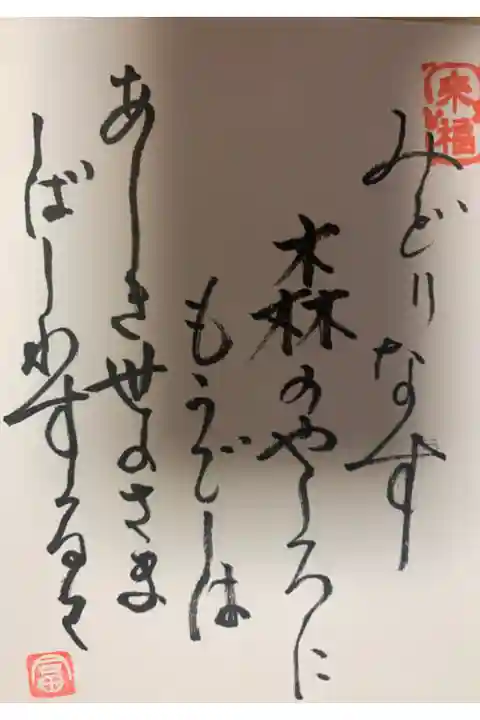 来福
みどりなす
森のやしろに
もうでしは
あしき世のさま
ばしわする